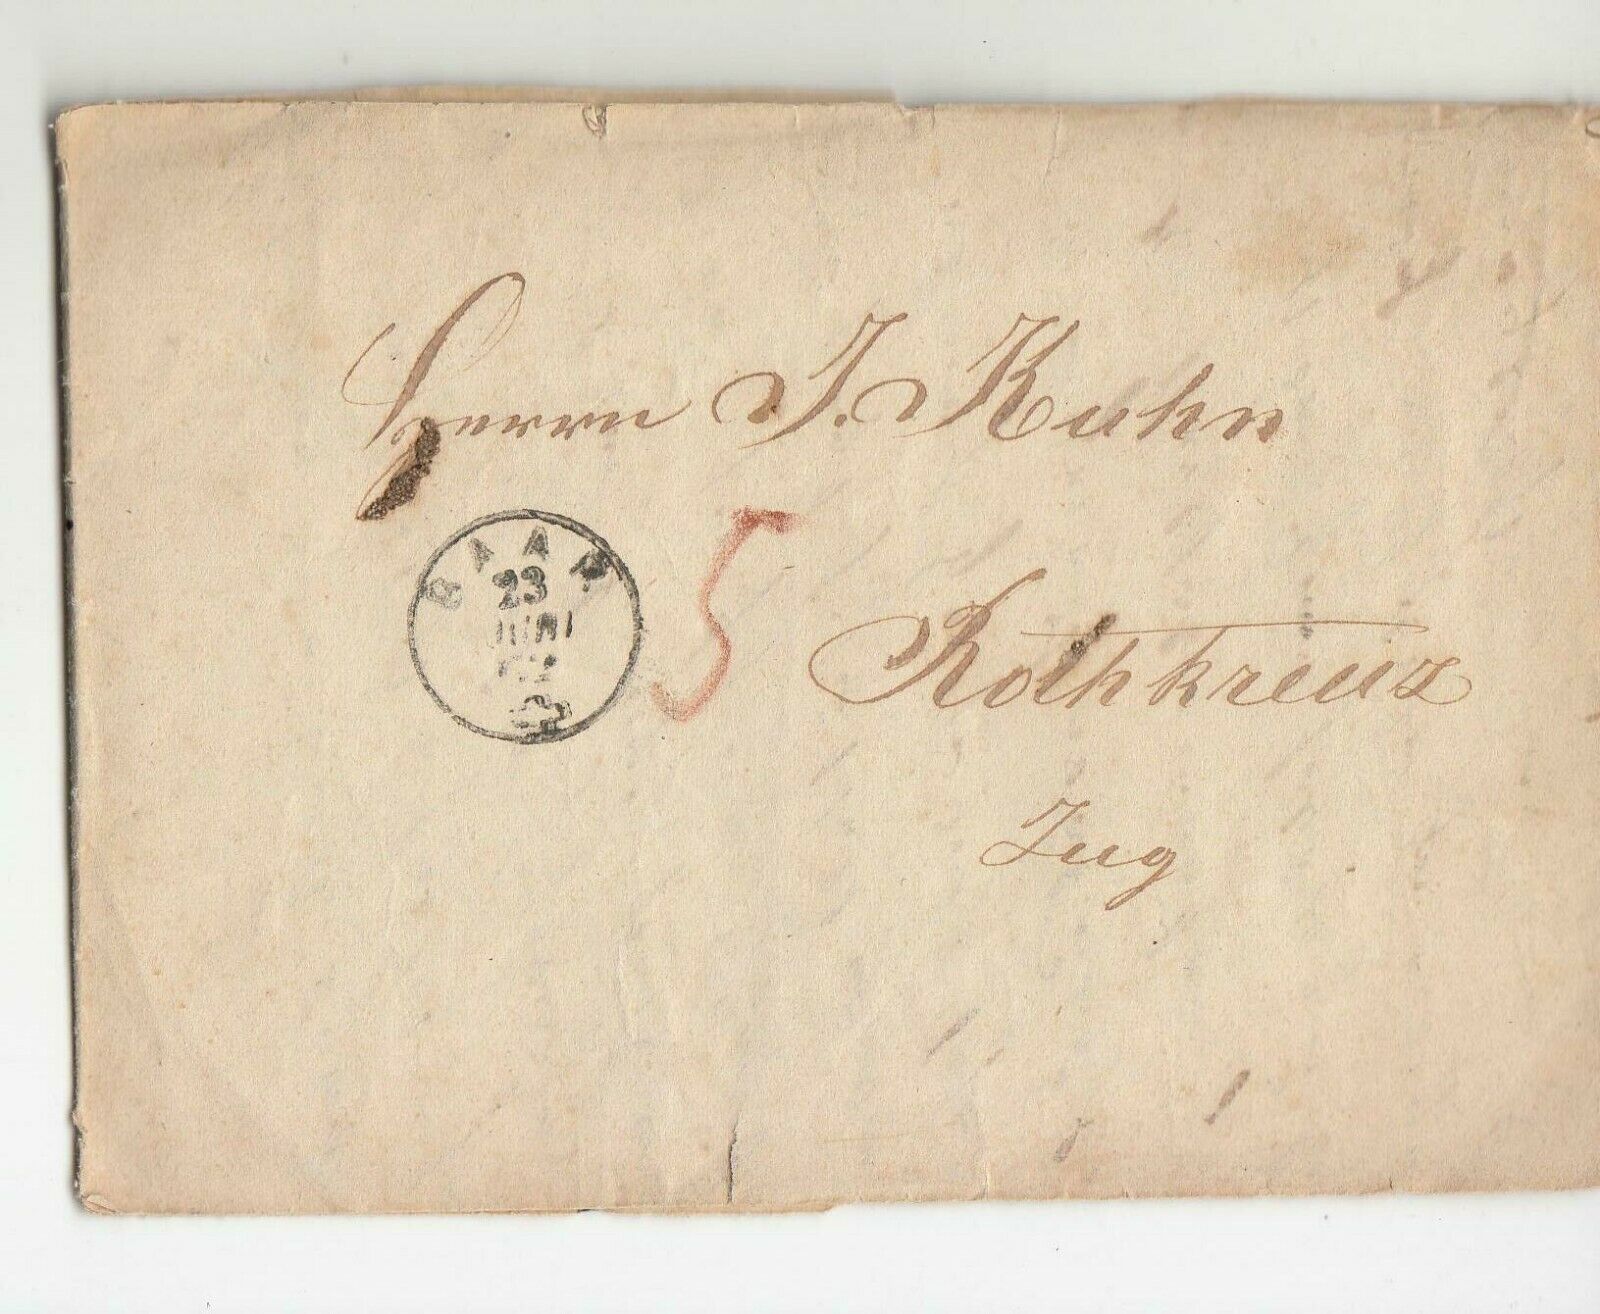 Herrn J. Kuhn
BAAR
23
JUNI
5
Rothkreuz
Zug